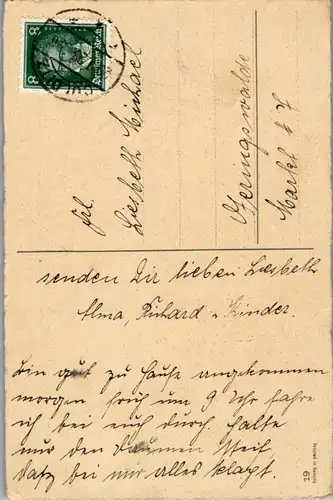 8 Deutsches Reich 8
Frl.
Liesbeth Michael
Geringswalde
Markt 7
senden Dir lieben Liesbeth
Alma, Richard u Kinder.
Bin gut zu Hause angekommen
morgen früh um 9 Uhr fahre
ich bei euch durch. halte
nur den Daumen steif,
daß bei mir alles klapt.
19
Printed in Saxony